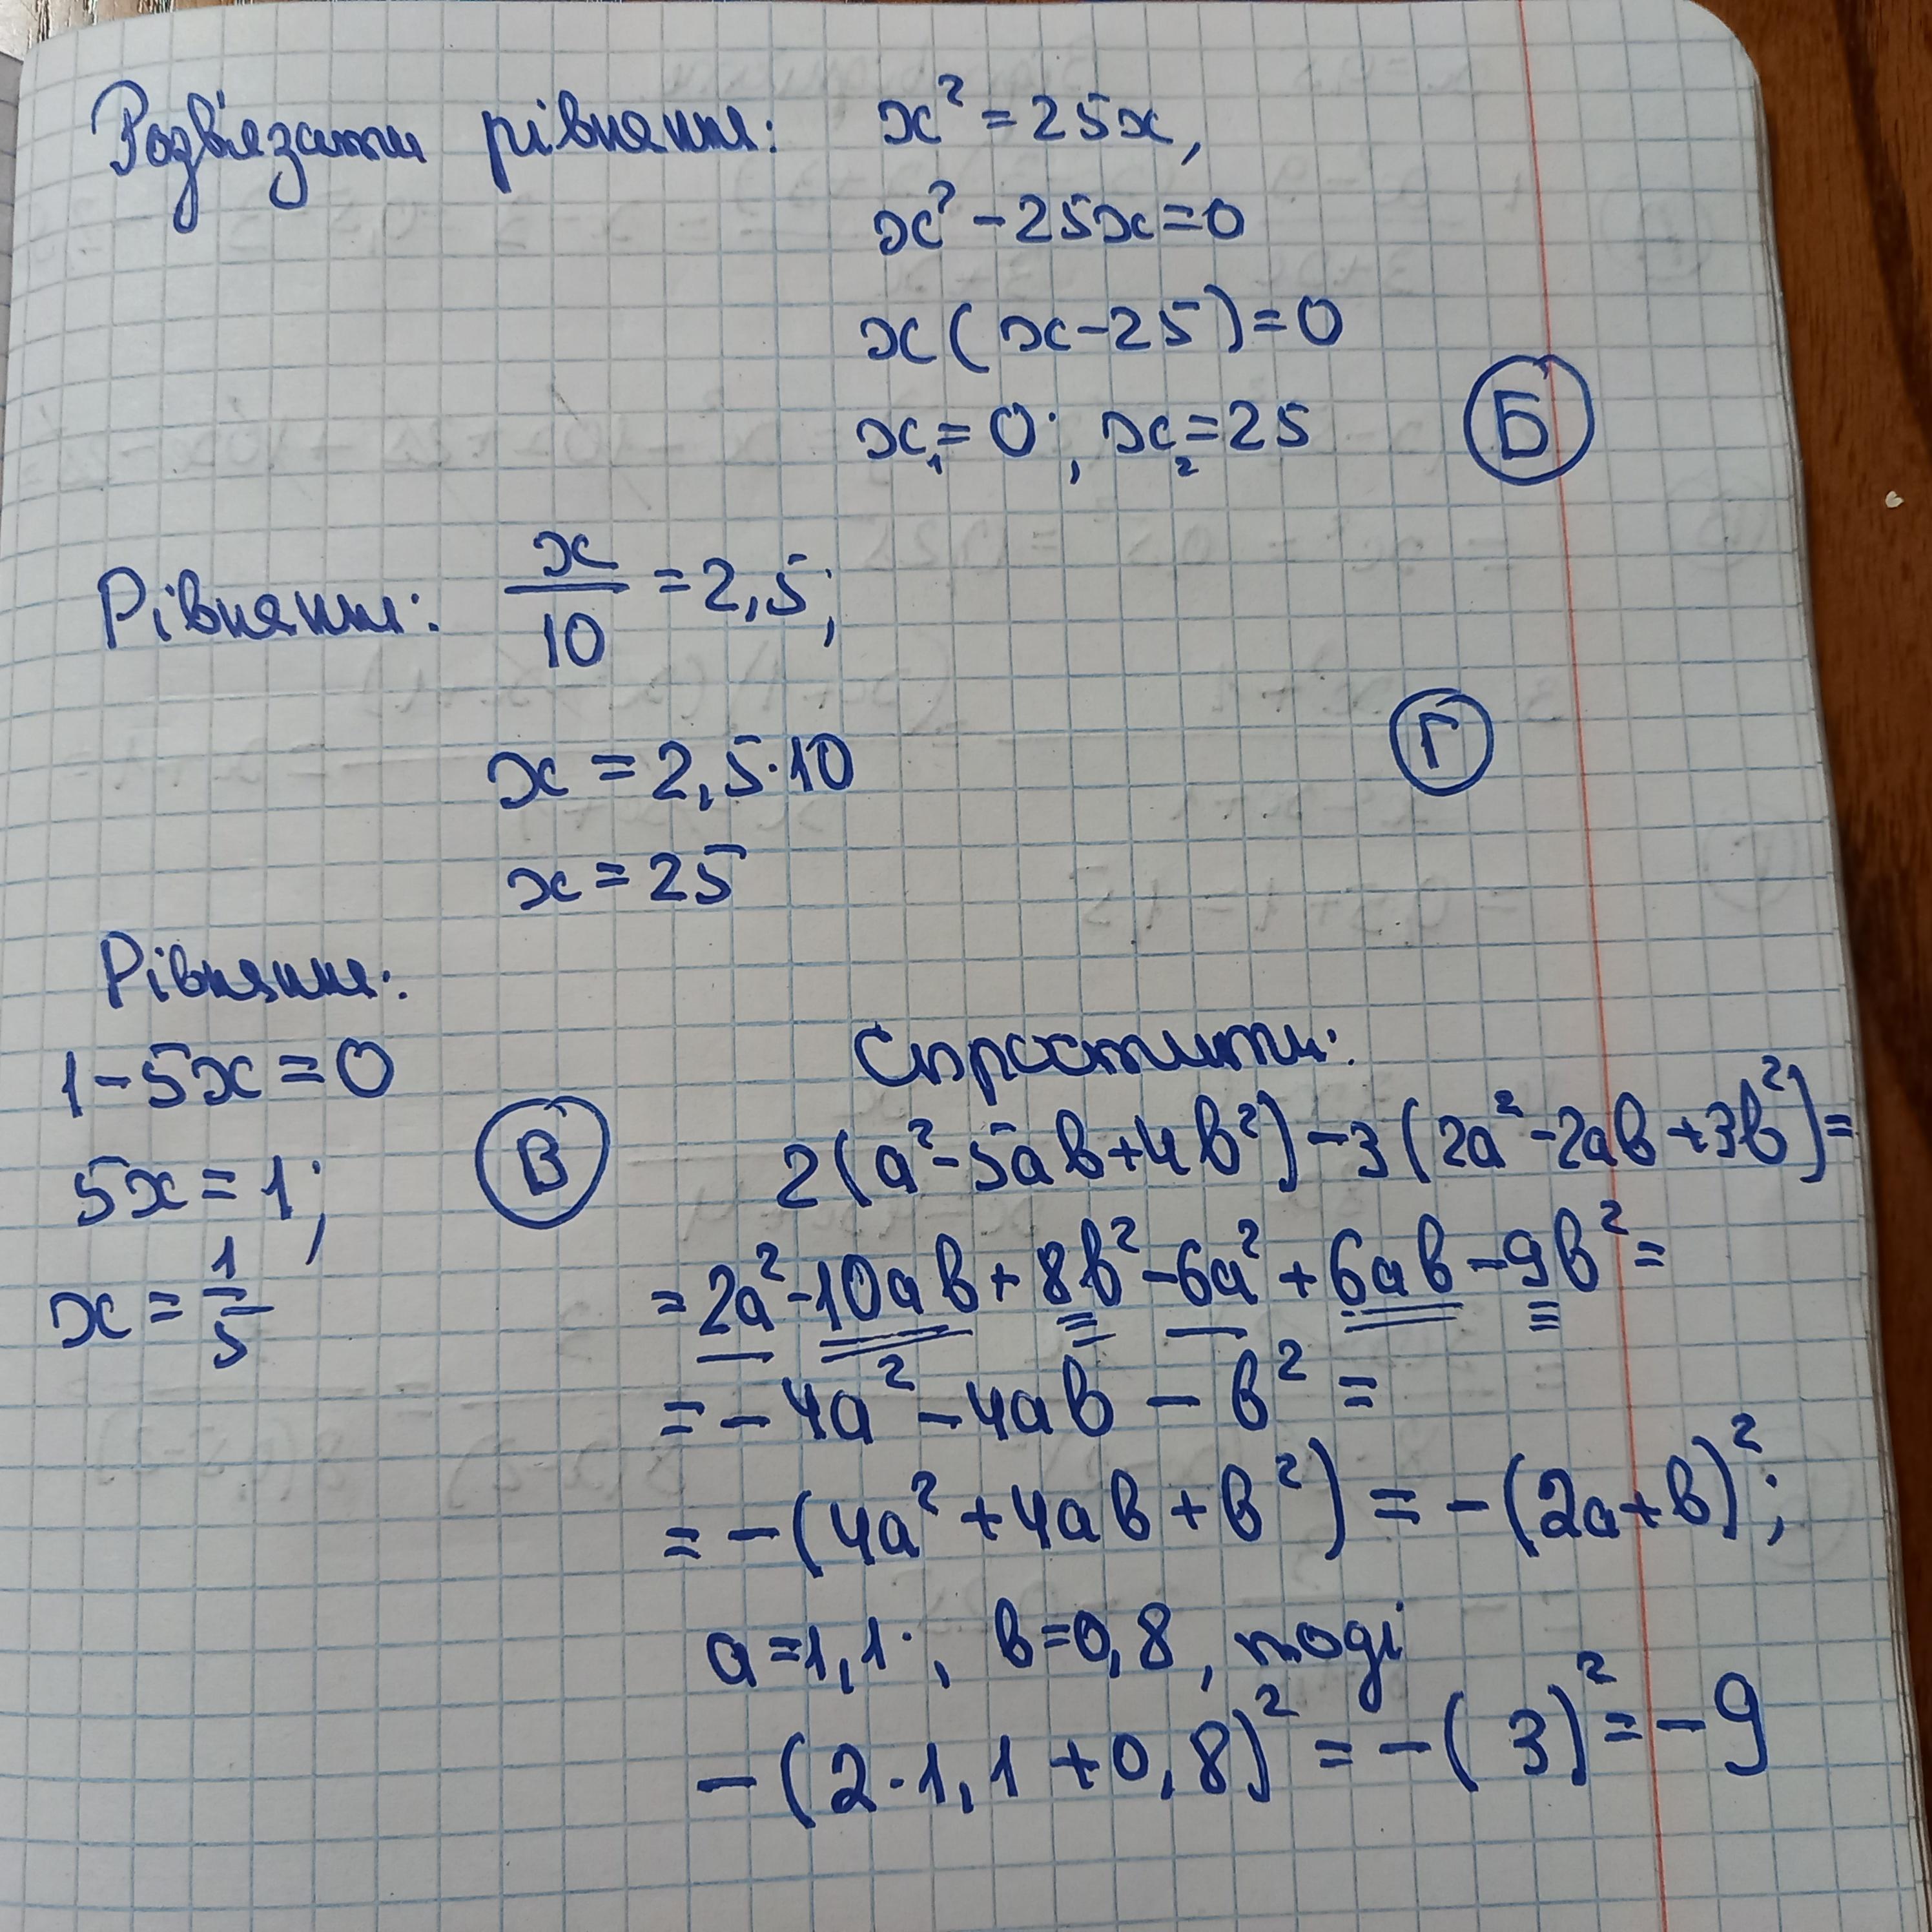 Розв'язати рівняння: x² = 25x,
x² - 25x = 0
x(x - 25) = 0
x₁ = 0; x₂ = 25
Б
Рівняння: x/10 = 2,5;
x = 2,5·10
Г
x = 25
Рівняння:
1 - 5x = 0
5x = 1;
x = 1/5
В
Спростити:
2(a² - 5ab + 4b²) - 3(2a² - 2ab + 3b²) =
= 2a² - 10ab + 8b² - 6a² + 6ab - 9b² =
= - 4a² - 4ab - b² =
= - (4a² + 4ab + b²) = - (2a + b)²;
a = 1,1; b = 0,8, тоді
- (2·1,1 + 0,8)² = - (3)² = - 9